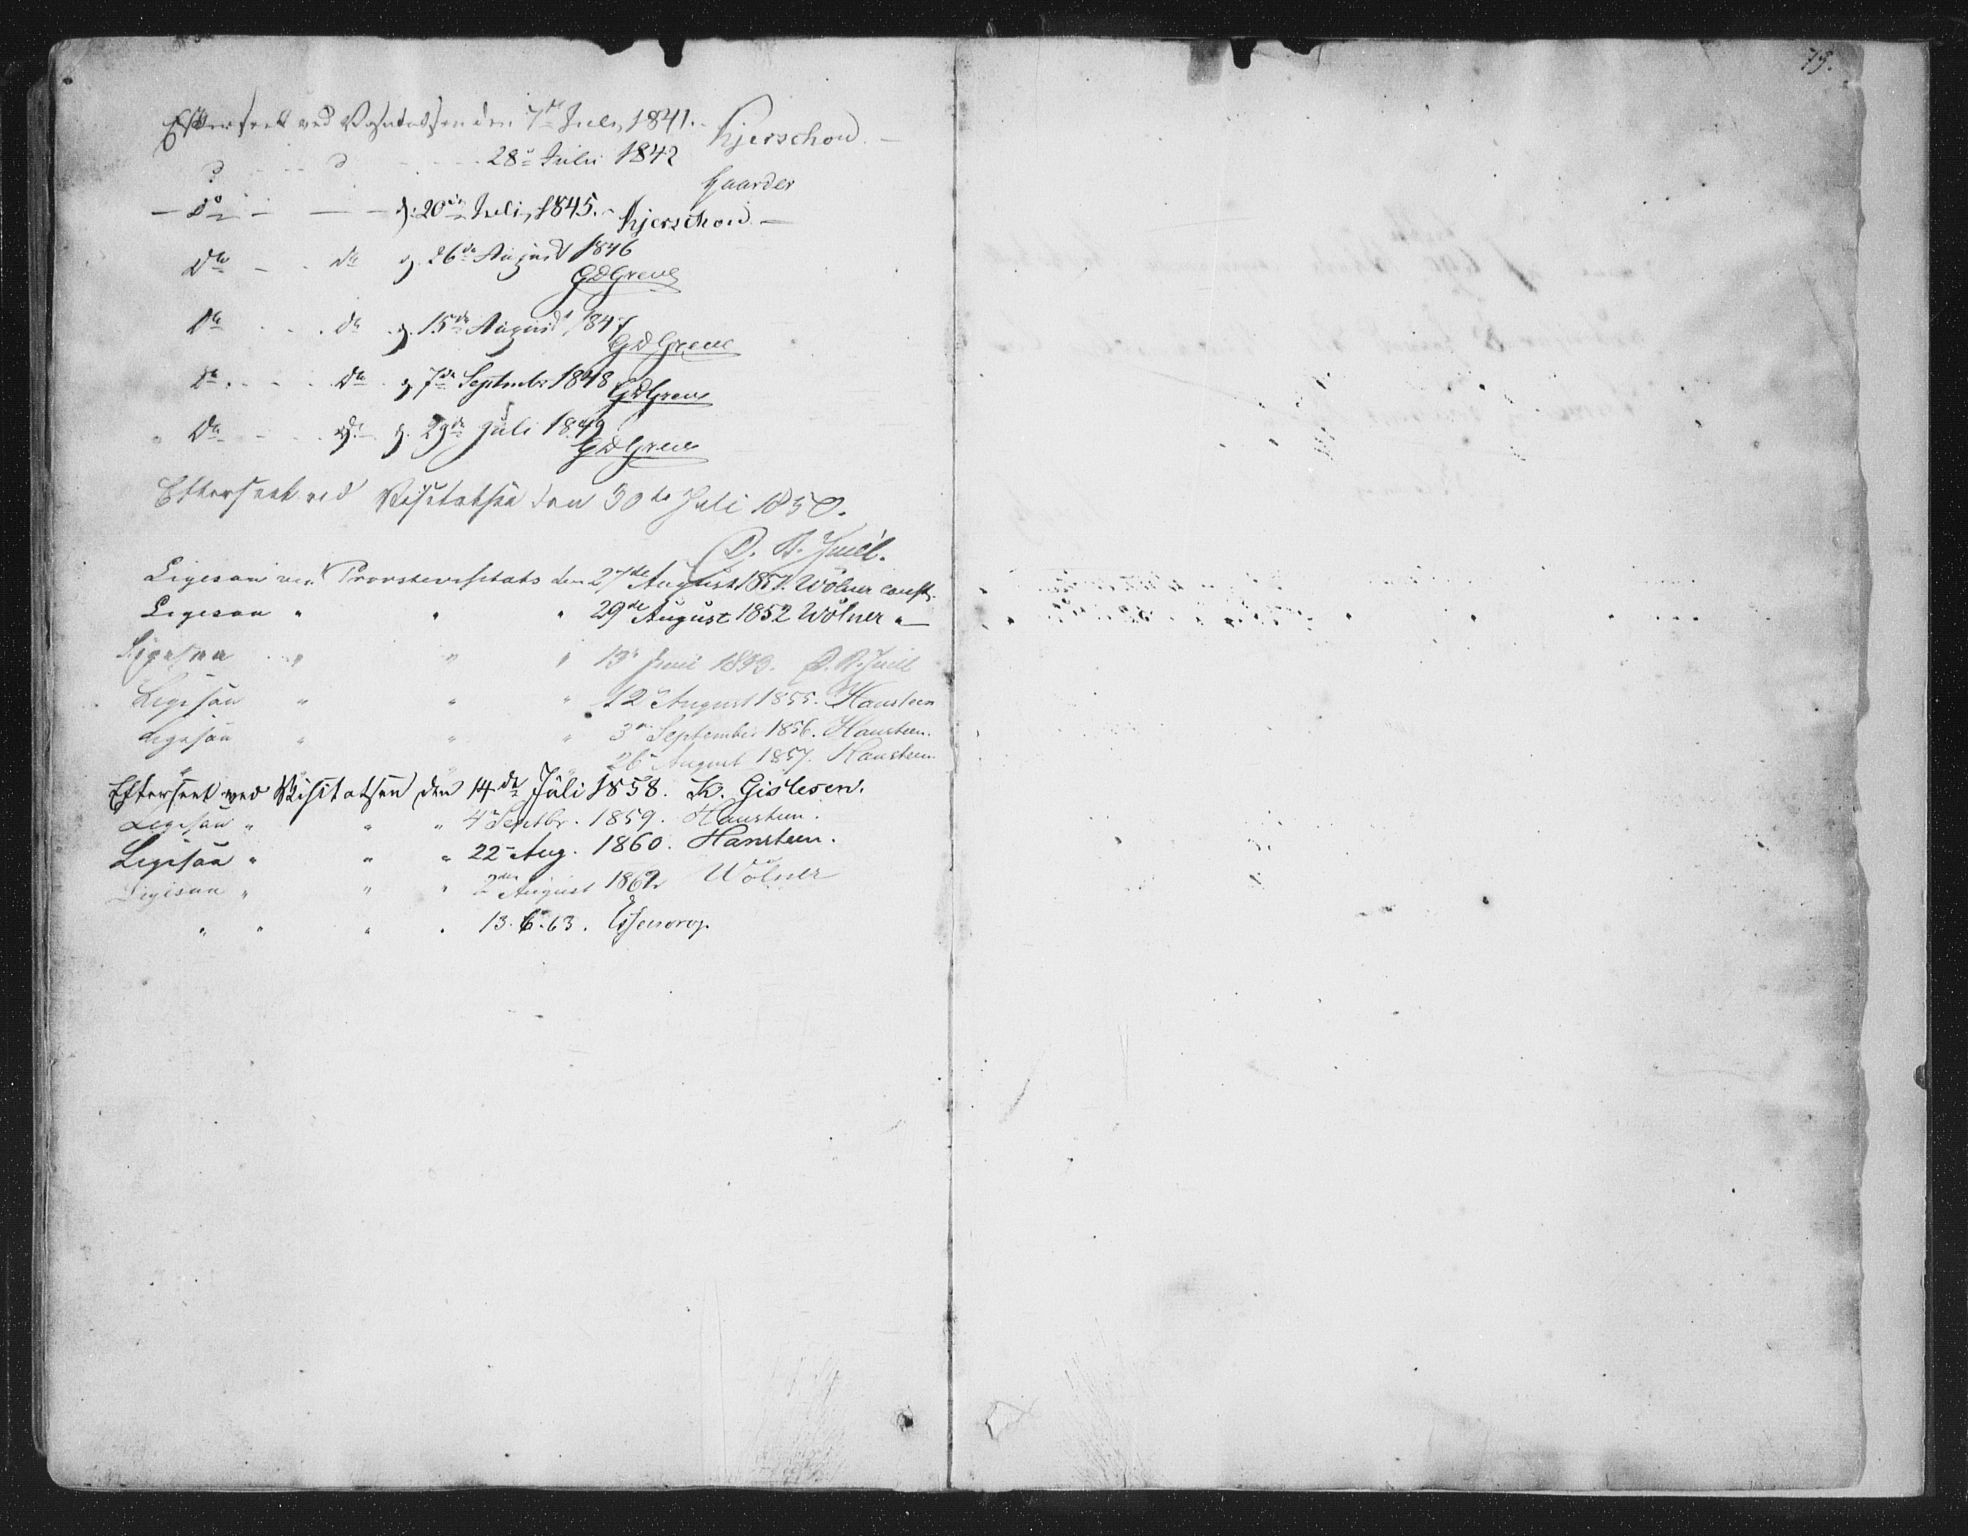 75.
Efterseet ved Visitatsen den 7de Juli 1841. Kjerschow.
d d 28de Julii 1842
Gaarder
— do — — — d: 20de Juli, 1845. — Kjerschow. —
Do — do d. 26de August 1846
GDGreve
Do do d. 15de August 1847
GDGreve
Do do d 7de Septembr 1848 GDGreve
Do do d. 29de Juli 1849
GDGreve
Efterseet ved Visitatsen den 30te Juli 1850.
D. B. Juell.
Ligesaa ved Provstevisitats den 27de August 1851. Wölner const.
Ligesaa " " " 29de August 1852 Wölner "—
Ligesaa " " " 13de Juni 1853. D. B. Juell
Ligesaa " " " 12te August 1855. Hansteen
Ligesaa " " " 3de September 1856. Hansteen.
" " " 26de August 1857. Hansteen
Efterseet ved Visitatsen den 14de Juli 1858. K. Gislesen.
Ligesaa " " " 4de Septbr. 1859. Hansteen.
Ligesaa " " " 22de Aug. 1860. Hansteen.
Ligesaa " " " 2den August 1862 Wölner
" " " " 13. 6. 63. Essendrop.